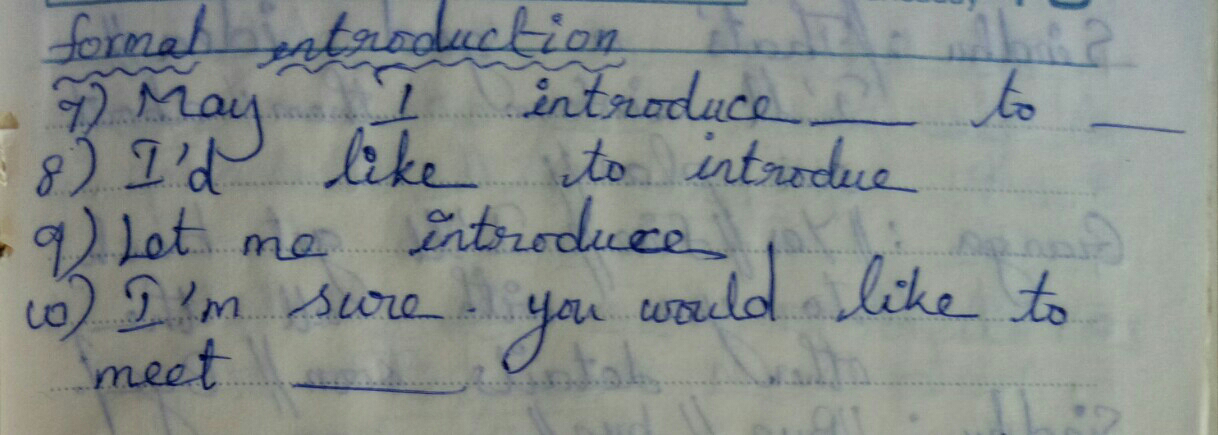 formal introduction
7) May I introduce ___ to ___
8) I'd like to introdue
9) Let me introduce
10) I'm sure. you would like to
meet ___